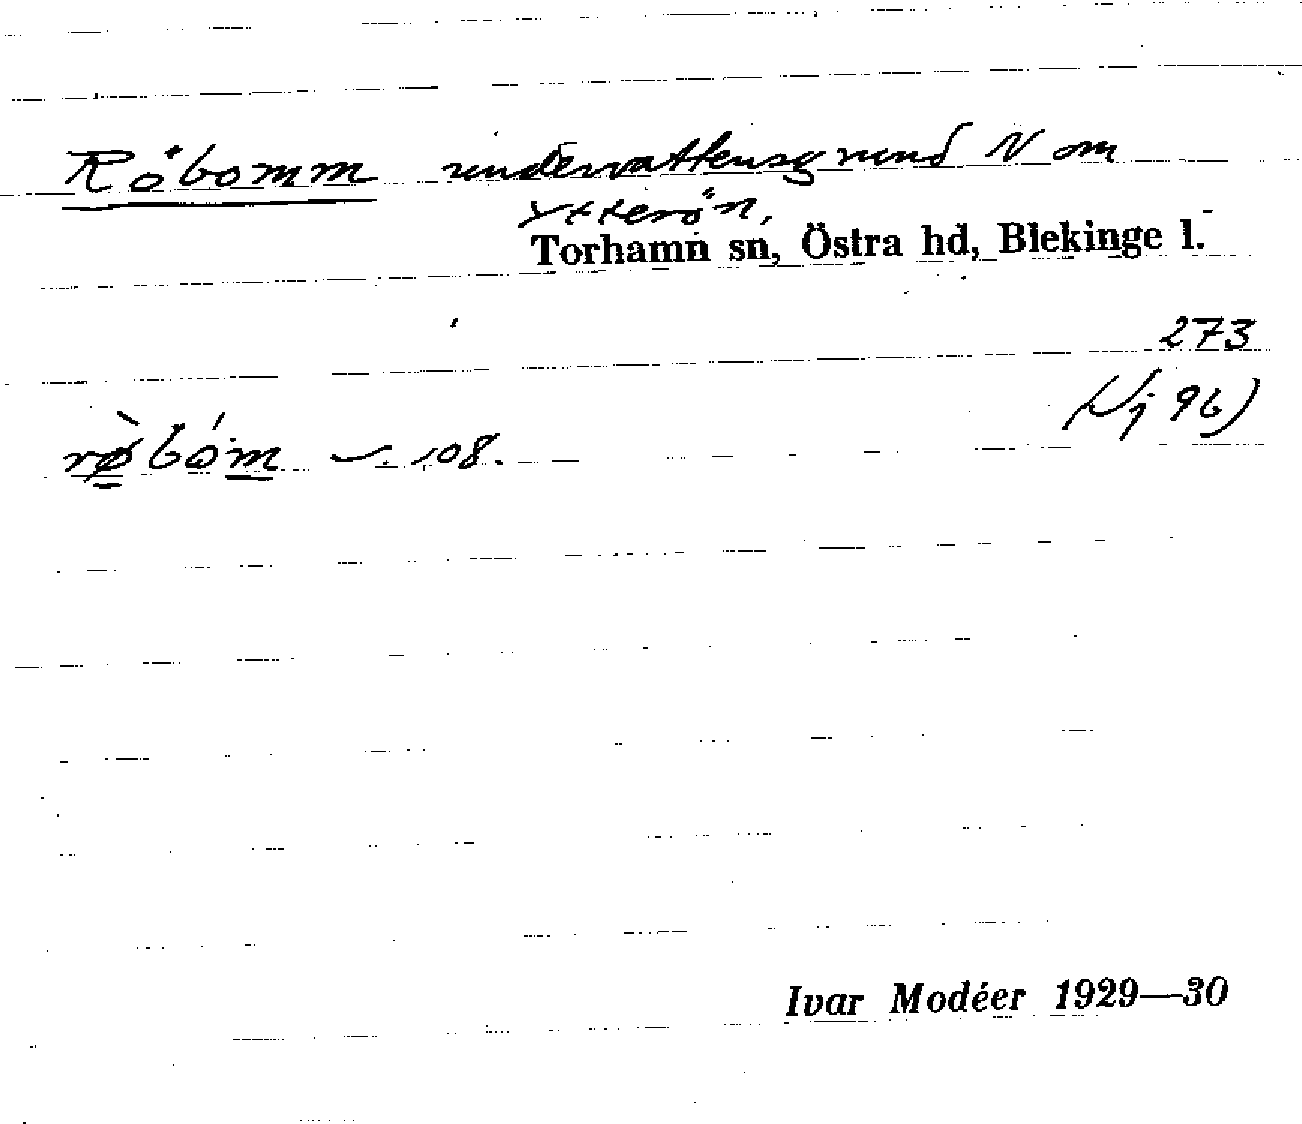 Röbomm undervattensgrund N om
Ytterön,
Torhamn sn, Östra hd, Blekinge l.
273
(Vj 96)
rø̀bóm 108.
Ivar Modéer 1929—30